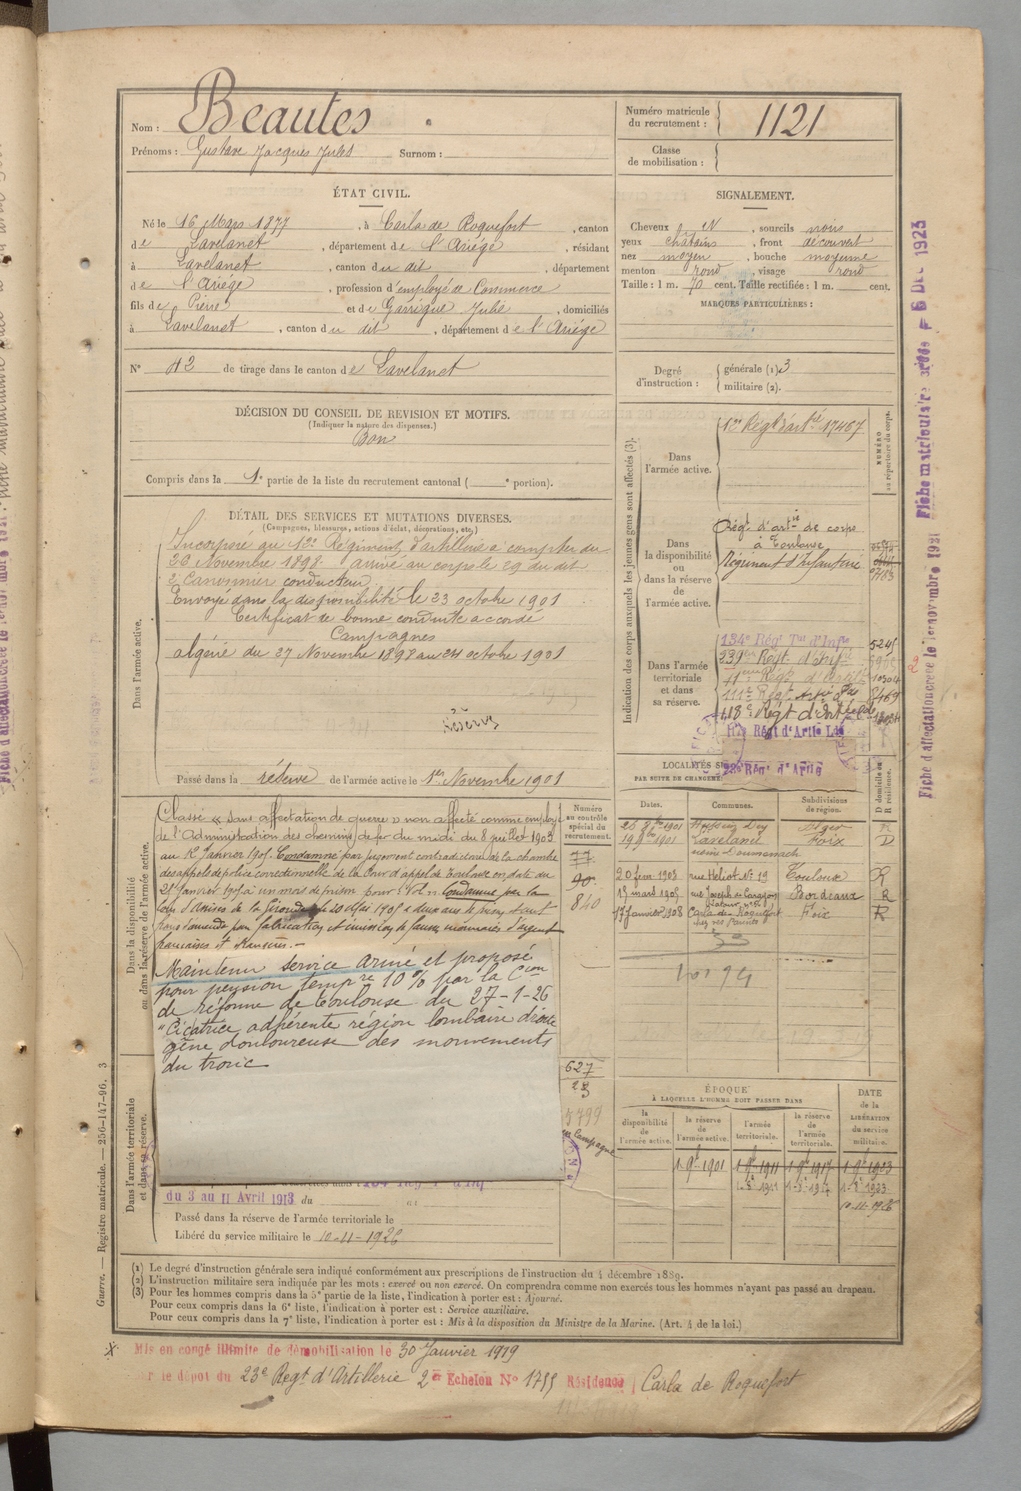 Nom : Beautes
Prénoms : Gustave Jacques Jules Surnom :
Numéro matricule du recrutement : 1121
Classe de mobilisation :
ÉTAT CIVIL.
Né le 16 Mars 1877, à Carla de Roquefort, canton
de Lavelanet, département de l'Ariége, résidant
à Lavelanet, canton du dit, département
de l'Ariége, profession d'employé de Commerce
fils de Pierre et de Garrigue Julie, domiciliés
à Lavelanet, canton du dit, département de l'Ariége
N° 42 de tirage dans le canton de Lavelanet
SIGNALEMENT.
Cheveux N, sourcils noirs
yeux châtains, front découvert
nez moyen, bouche moyenne
menton rond, visage rond
Taille : 1 m. 70 cent. Taille rectifiée : 1 m. cent.
MARQUES PARTICULIÈRES :
Degré d'instruction : générale (1) 3
militaire (2).
DÉCISION DU CONSEIL DE REVISION ET MOTIFS.
(Indiquer la nature des dispenses.)
Bon
Compris dans la 1e partie de la liste du recrutement cantonal ( e portion).
DÉTAIL DES SERVICES ET MUTATIONS DIVERSES.
(Campagnes, blessures, actions d'éclat, décorations, etc.)
Dans l'armée active.
Incorporé au 13e Régiment d'artillerie à compter du
26 Novembre 1898. arrivé au corps le 29 du dit
2e Canonnier conducteur
Envoyé dans la disponibilité le 23 octobre 1901
Certificat de bonne conduite accordé
Campagnes
algérie du 27 Novembre 1898 au 24 octobre 1901
Réserve
Passé dans la réserve de l'armée active le 1er Novembre 1901
Indication des corps auxquels les jeunes gens sont affectés (3).
NUMÉRO au répertoire du corps.
Dans l'armée active.
13e Régt d'artie 17467
Dans la disponibilité ou dans la réserve de l'armée active.
Régt d'artie de corps
à Toulouse
Régiment d'Infanterie
Dans l'armée territoriale et dans sa réserve.
134e Régt Tal d'Infie 5245
239e Régt d'Infie
Régt d'Artie 10304
118e Régt d'Artie Lde
Régt d'Artie Lde
23e Régt d'Artie
LOCALITÉS S
PAR SUITE DE CHANGEME
Dates. Communes. Subdivisions de région. D domicile ou R résidence.
26 8bre 1901 Hussein Dey Alger R
19 9bre 1901 Lavelanet Foix D
20 fév. 1903 rue Héliot No 19 Toulouse R
15 mars 1905 rue Joseph de Carayon Bordeaux R
17 janvier 1908 Carla de Roquefort Foix R
chez ses Parents
Dans la disponibilité ou dans la réserve de l'armée active.
Classé « sans affectation de guerre » non affecté comme employé
de l'Administration des chemins de fer du midi du 8 juillet 1903
au 1er Janvier 1905. Condamné par jugement contradictoire de la chambre
des appels de police correctionnelle de la Cour d'appel de Toulouse en date du
25 Janvier 1905 à un mois de prison pour : Vol. Condamné par la
Cour d'Assises de la Gironde le 20 Mai 1905 à deux ans de prison et cent
francs d'amende pour fabrication et émission de fausses monnaies d'argent
françaises et étrangères.
Maintenu service armé et proposé
pour pension tempre 10% par la Con
de réforme de Toulouse du 27-1-26
"Cicatrice adhérente région lombaire droite
gêne douloureuse des mouvements
du tronc
Numéro au contrôle spécial du recrutement.
77
90
840
627
23
5799
Campagne
Dans l'armée territoriale et dans sa réserve.
du 3 au 11 Avril 1913 du
Passé dans la réserve de l'armée territoriale le
Libéré du service militaire le 10-11-1926
ÉPOQUE
À LAQUELLE L'HOMME DOIT PASSER DANS
la disponibilité de l'armée active. la réserve de l'armée active. l'armée territoriale. la réserve de l'armée territoriale. DATE de la LIBÉRATION du service militaire.
1 9bre 1901 1 9bre 1911 1 9bre 1917 1 9bre 1923
10-11-1926
(1) Le degré d'instruction générale sera indiqué conformément aux prescriptions de l'instruction du 4 décembre 1889.
(2) L'instruction militaire sera indiquée par les mots : exercé ou non exercé. On comprendra comme non exercés tous les hommes n'ayant pas passé au drapeau.
(3) Pour les hommes compris dans la 5e partie de la liste, l'indication à porter est : Ajourné.
Pour ceux compris dans la 6e liste, l'indication à porter est : Service auxiliaire.
Pour ceux compris dans la 7e liste, l'indication à porter est : Mis à la disposition du Ministre de la Marine. (Art. 4 de la loi.)
Guerre. — Registre matricule. — 250-147-96. 3
Mis en congé illimité de démobilisation le 30 Janvier 1919
r le dépôt du 23e Regt d'Artillerie 2e Echelon No 1755 Résidence Carla de Roquefort
Fiche d'affectation créée le 1er novembre 1921
Fiche matriculaire créée le 6 DEC 1923